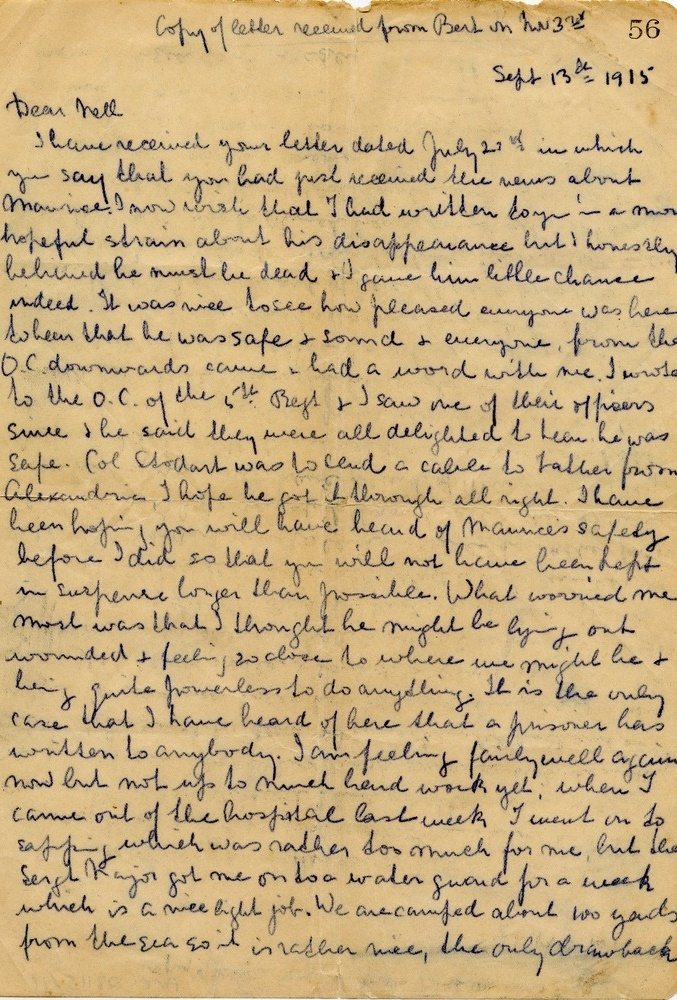 Copy of letter received from Bert on Nov 3rd
56
Sept 13th 1915
Dear Nell
I have received your letter dated July 22nd in which
you say that you had just received the news about
Maurice. I now wish that I had written to you in a more
hopeful strain about his disappearance but I honestly
believed he must be dead & I gave him little chance
indeed. It was nice to see how pleased everyone was here
to hear that he was safe & sound & everyone, from the
O.C. downwards came & had a word with me. I wrote
to the O.C. of the 5th Regt & I saw one of their officers
since & he said they were all delighted to hear he was
safe. Col Stodart was to send a cable to Father from
Alexandria, I hope he got it through all right. I have
been hoping you will have heard of Maurice's safety
before I did so that you will not have been kept
in suspense longer than possible. What worried me
most was that I thought he might be lying out
wounded & feeling so close to where we might be &
being quite powerless to do anything. It is the only
case that I have heard of here that a prisoner has
written to anybody. I am feeling fairly well again
now but not up to much hard work yet, when I
came out of the hospital last week I went on to
sapping which was rather too much for me, but the
Sergt Major got me on to a water guard for a week
which is a nice light job. We are camped about 100 yards
from the sea so it is rather nice, the only drawback